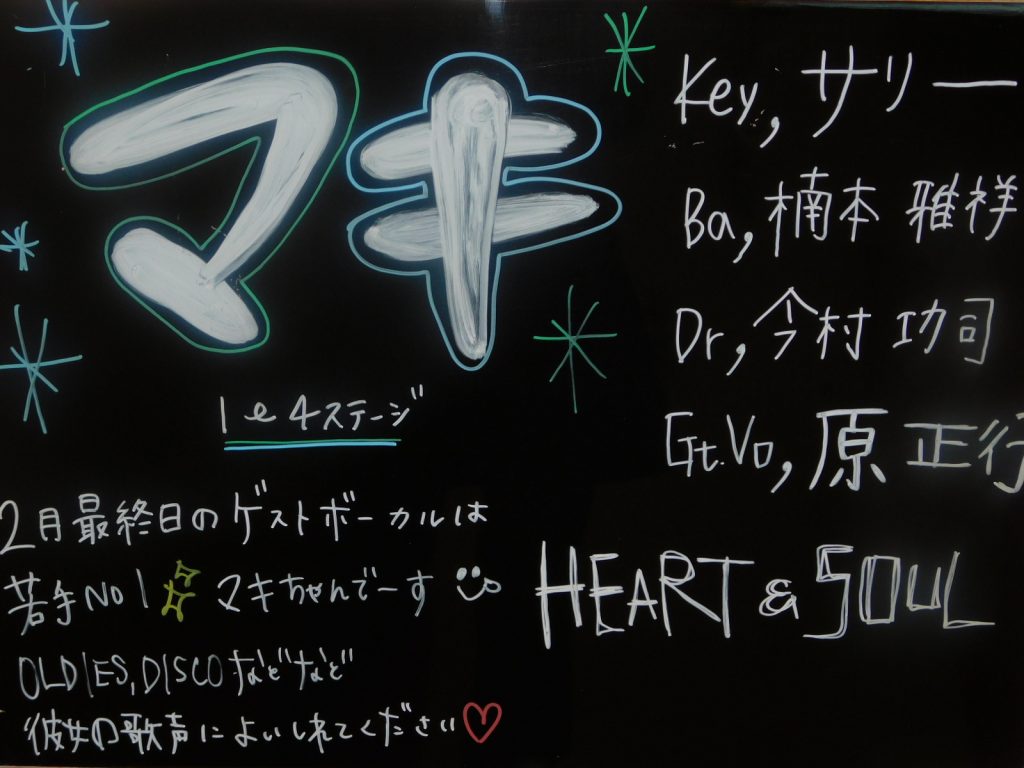 マキ
1&4ステージ
2月最終日のゲストボーカルは
若手NO1 マキちゃんでーす
OLDIES,DISCOなどなど
彼女の歌声によいしれてください♡
Key,サリー
Ba,楠本 雅祥
Dr,今村 功司
Gt.Vo,原 正行
HEART & SOUL